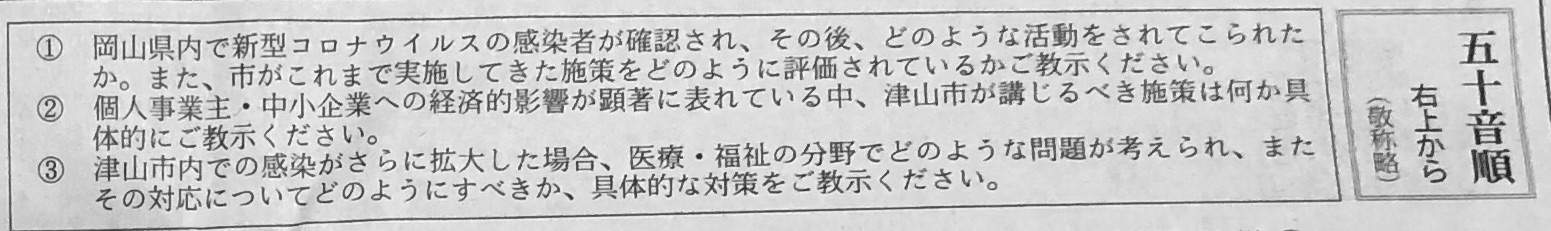 ① 岡山県内で新型コロナウイルスの感染者が確認され、その後、どのような活動をされてこられた
か。また、市がこれまで実施してきた施策をどのように評価されているかご教示ください。
② 個人事業主・中小企業への経済的影響が顕著に表れている中、津山市が講じるべき施策は何か具
体的にご教示ください。
③ 津山市内での感染がさらに拡大した場合、医療・福祉の分野でどのような問題が考えられ、また
その対応についてどのようにすべきか、具体的な対策をご教示ください。
五十音順
右上から
(敬称略)